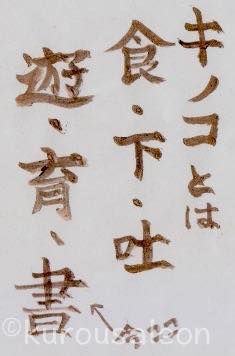 キノコとは
食・下・吐
遊・育・書
©kurousalson